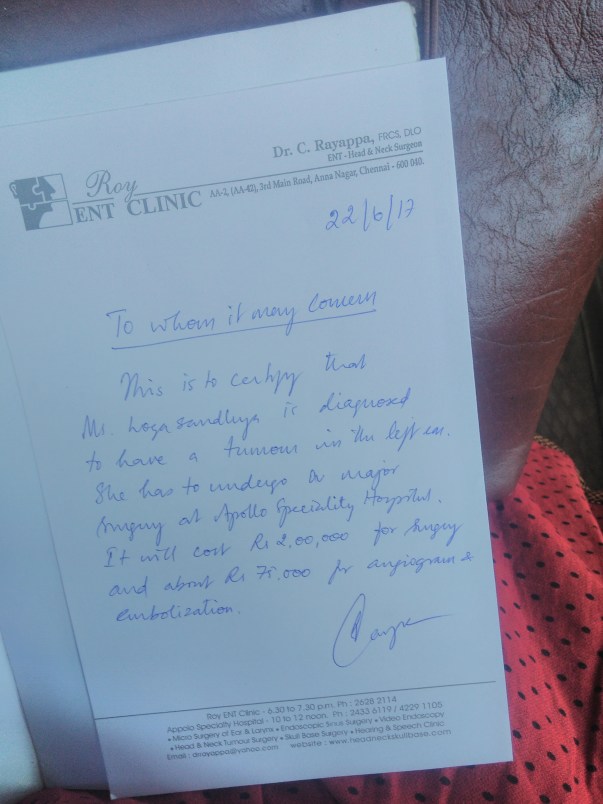 Dr. C. Rayappa, FRCS, DLO
ENT - Head & Neck Surgeon
Roy
ENT CLINIC AA-2, (AA-42), 3rd Main Road, Anna Nagar, Chennai - 600 040.
22/6/17
To whom it may concern
This is to certify that
Ms. Loga Sandhya is diagnosed
to have a tumour in the left ear.
She has to undergo a major
surgery at Apollo Speciality Hospital.
It will cost Rs 2,00,000 for surgery
and about Rs 75,000 for angiogram &
embolization.
Roy ENT Clinic - 6.30 to 7.30 p.m. Ph : 2628 2114
Appolo Specialty Hospital - 10 to 12 noon. Ph. : 2433 6119 / 4229 1105
• Micro Surgery of Ear & Larynx • Endoscopic Sinus Surgery • Video Endoscopy
• Head & Neck Tumour Surgery • Skull Base Surgery • Hearing & Speech Clinic
Email : drrayappa@yahoo.com website : www.headneckskullbase.com